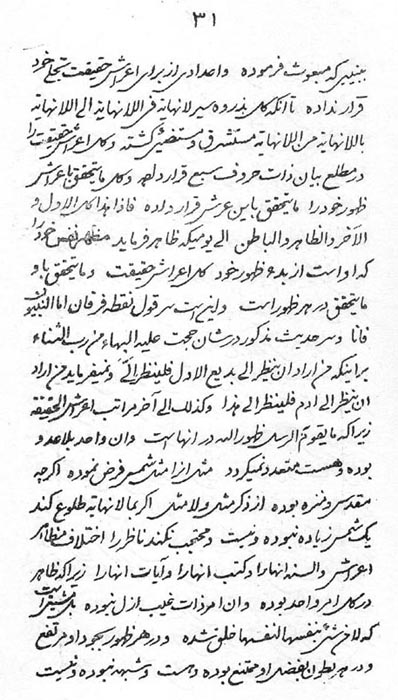 ٣١
بنبیی که مبعوث فرموده واحدی از برای اعراش حقیقت تجلی خود
قرار نداده تا آنکه کل بذروه سیر لا نهایة فی اللانهایة الی اللانهایة
باللانهایة من اللانهایة مستشرق و مستضیئ گشته وکل اعراش حقیقت را
در مطلع بیان ذات حروف سبع قرار داده وکل ما یتحقق باعراش
ظهور خود را ما یتحقق باین عرش قرار داده فاذا هذا کل الاول و
الآخر و الظاهر و الباطن الی یومیکه ظاهر فرماید مظهر نفس خود را
که او است از بدء ظهور خود کل اعراش حقیقت وما یتحقق باو
ما یتحقق در هر ظهور است و اینست سر قول نقطه فرقان اما النبیون
فانا و سر حدیث مذکور در شان حجت علیه البهاء من رب الثناء
بر اینکه من اراد ان ینظر الی بدیع الاول فلینظر الیّ و نمیفرماید من اراد
ان ینظر الی ادم فلینظر الی هذا وکذلک الی آخر مراتب اعراش الحقیقة
زیرا که ما یقوم الرسل ظهور الله در انها است وان واحد بلا عدد
بوده و هست متعدد نمیگردد مثل انرا مثل شمس فرض نموده اگرچه
مقدس و منزه بوده از ذکر مثل و لا مثل اگر بما لا نهایة طلوع کند
یک شمس زیاده نبوده و نیست و محتجب نکند ناظر را اختلاف مظاهر
اعراش و السنه انها را و کتب انها را و ایات انها را زیرا که ظاهر
در کل امر واحد بوده وان امر ذات غیب ازل نبوده بل مشیت است
که لا من شیئ بنفسها لنفسها خلق شده و در هر ظهور بسجود او مرتفع
و در هر بطون بفضل او ممتنع بوده و هست و شبهه نبوده و نیست